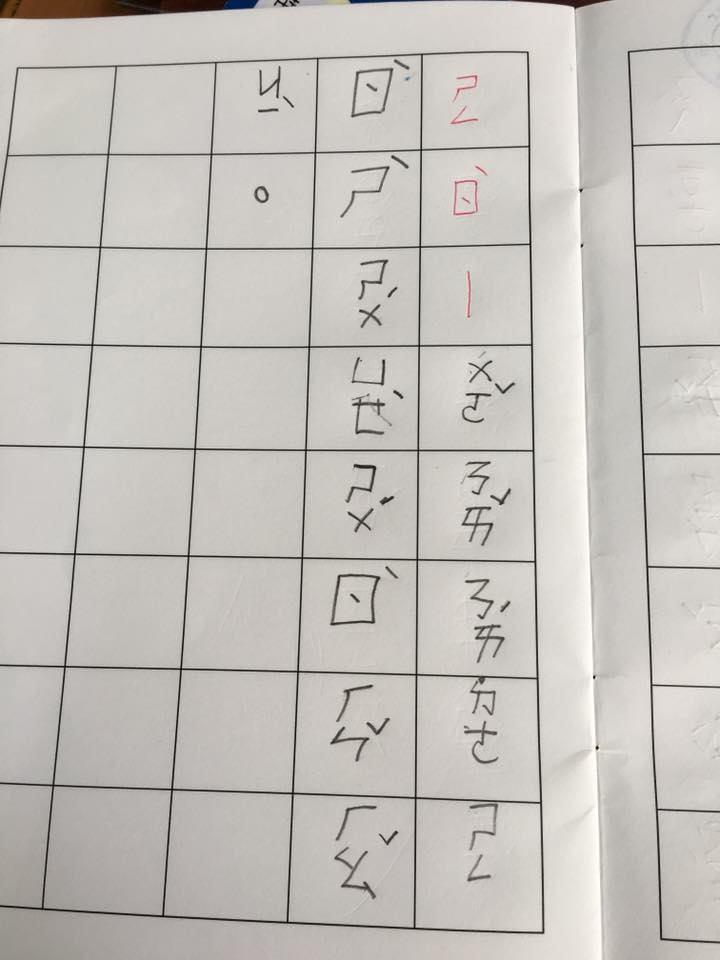 ㄕㄥ ㄖˋ ㄧ ㄨㄛˇ ㄋㄞˇ ㄋㄞ˙ ˙ㄉㄜ ㄕㄥ
ㄖˋ ㄕˋ ㄕㄨˋ ㄩㄝˋ ㄕㄨˋ ㄖˋ ㄏㄣˇ ㄏㄠˇ
ㄐㄧˋ 。